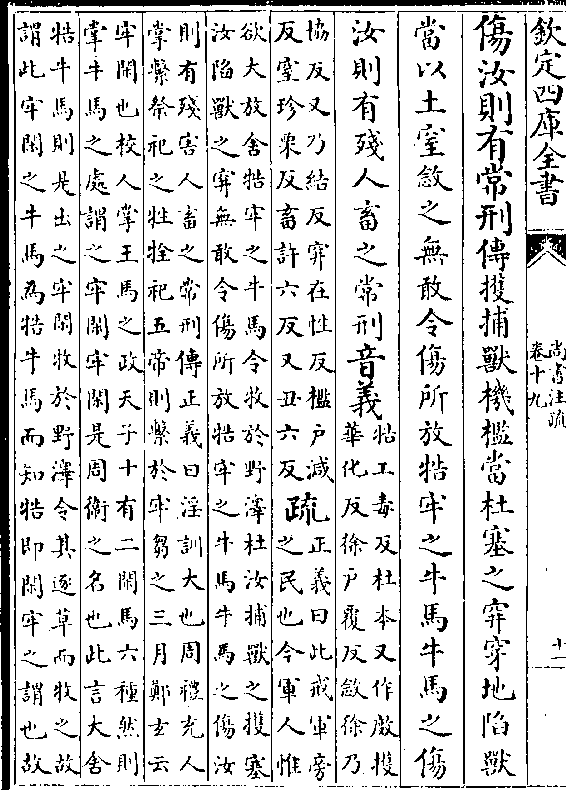 欽定四庫全書
尚書注疏
卷十九
十一
傷汝則有常刑傳擭捕獸機檻當杜塞之穽穿地陷獸
當以土窒斂之無敢令傷所放牿牢之牛馬牛馬之傷
汝則有殘人畜之常刑音義
牿工毒反杜本又作㪫擭
華化反徐戶覆反斂徐乃
協反又乃結反穽在性反檻戶減
反窒珍栗反畜許六反又丑六反
疏
正義曰此戒軍旁
之民也今軍人惟
欲大放舍牿牢之牛馬令牧於野澤杜汝捕獸之擭塞
汝陷獸之穽無敢令傷所放牿牢之牛馬牛馬之傷汝
則有殘害人畜之常刑傳正義曰淫訓大也周禮充人
掌繫祭祀之牲牷祀五帝則繫於牢芻之三月鄭玄云
牢閑也校人掌王馬之政天子十有二閑馬六種然則
掌牛馬之處謂之牢閑牢閑是周衛之名也此言大舍
牿牛馬則是出之牢閑牧於野澤令其逐草而牧之故
謂此牢閑之牛馬為牿牛馬而知牿即閑牢之謂也故